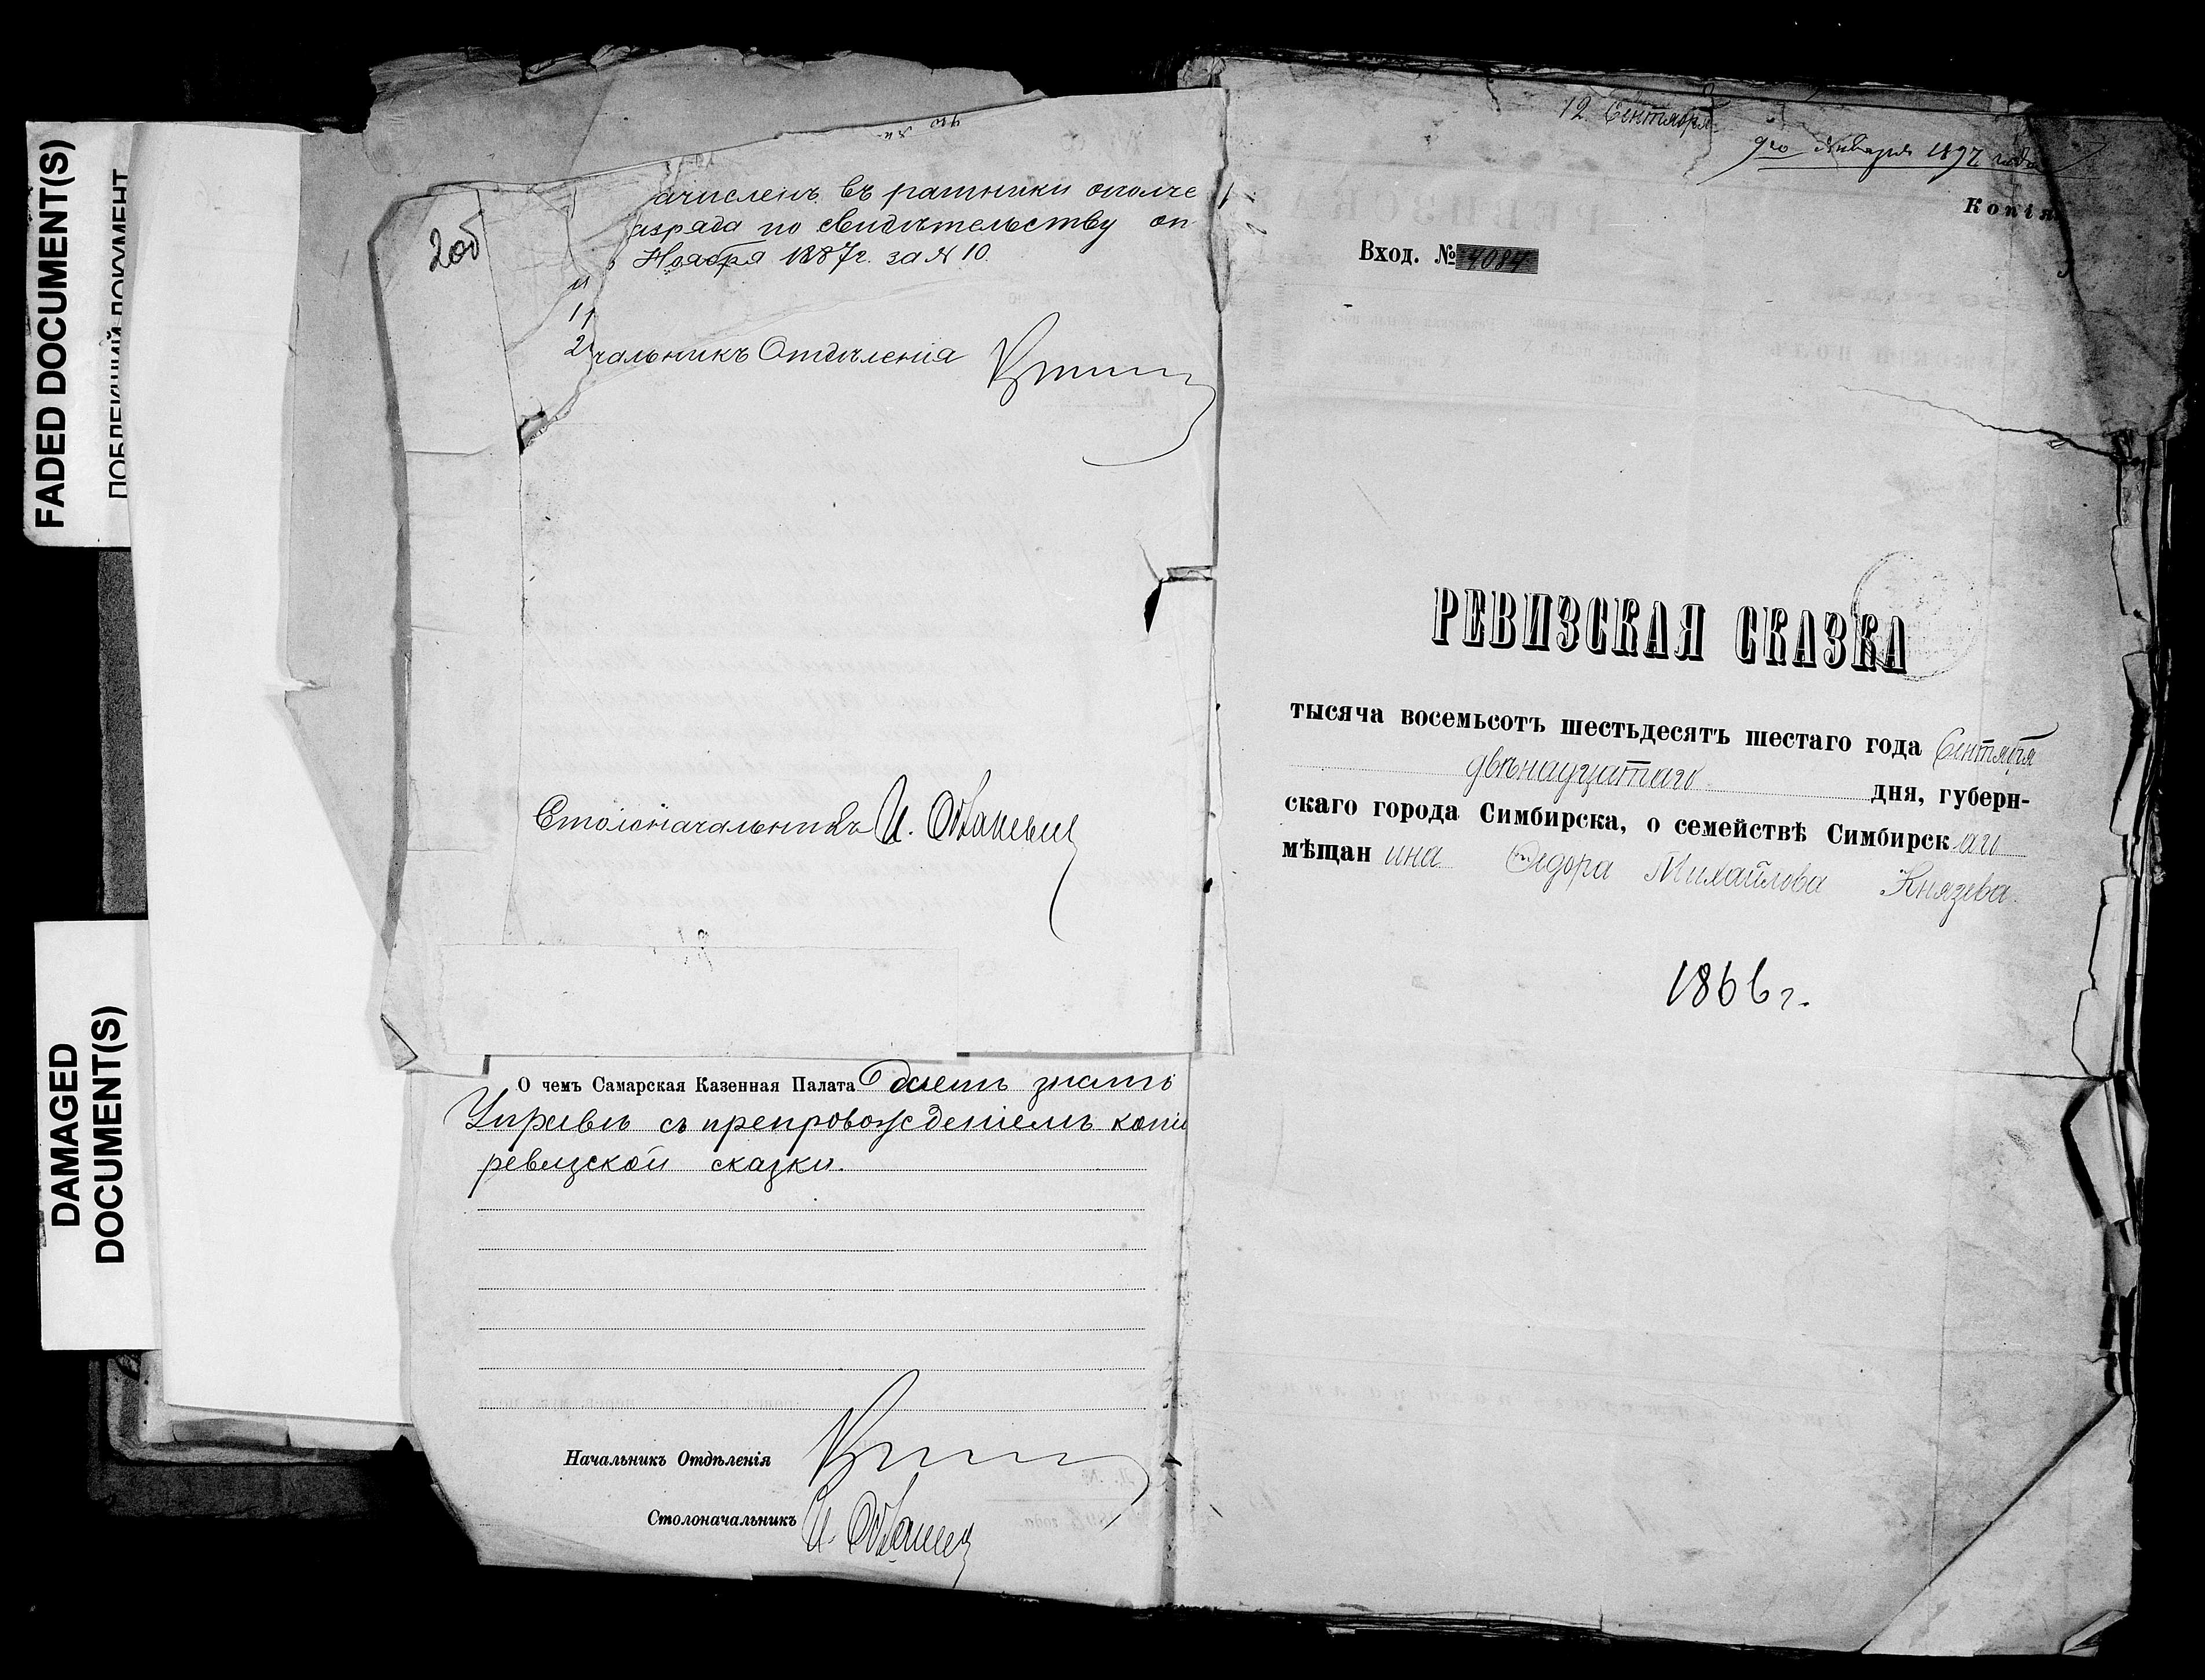 FADED DOCUMENT(S)
ПОБЛЕКШИЙ ДОКУМЕНТ
DAMAGED
DOCUMENT(S)
2об
ачисленъ въ ратники ополче
азряда по свидѣтельству от
Ноября 1887г. за № 10.
чальникъ Отдѣленія
Столоначальникъ И.
О чемъ Самарская Казенная Палата даетъ знать
Управѣ съ препровожденіемъ копіи
ревизской сказки.
Начальникъ Отдѣленія
Столоначальникъ И.
12 Сентября
9го Января 1892 года
Копія
Вход. № 4084
РЕВИЗСКАЯ СКАЗКА
тысяча восемьсотъ шестьдесятъ шестаго года Сентября
двѣнадцатаго дня, губерн-
скаго города Симбирска, о семействѣ Симбирскаго
мѣщанина Ѳедора Михайлова Князева.
1866 г.